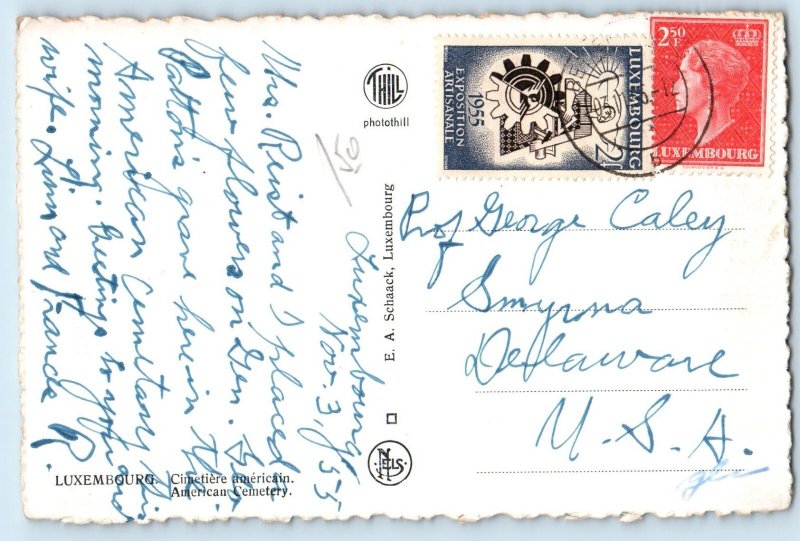 Luxembourg
Nov. 3, 55
Mrs. Reist and I placed a
few flowers on Gen. Geo.
Patton's grave here in the
American Cemetary this
morning. Greetings to you and
wife. Linn and Frances R.
THILL
photothill
E. A. Schaack, Luxembourg
NELS
LUXEMBOURG. Cimetière américain.
American Cemetery.
LUXEMBOURG
1955
EXPOSITION
ARTISANALE
2F
2.50
F
LUXEMBOURG
Prof George Caley
Smyrna
Delaware
U.S.A.